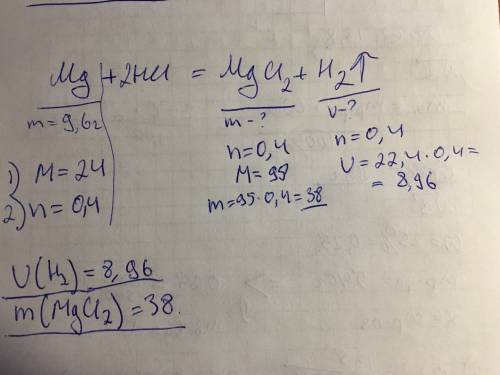 Mg + 2HCl = MgCl₂ + H₂↑
m = 9,6г m - ? V - ?
1) M = 24 n = 0,4 n = 0,4
2) n = 0,4 M = 95 V = 22,4 · 0,4 =
m = 95 · 0,4 = 38 = 8,96
V(H₂) = 8,96
m(MgCl₂) = 38.